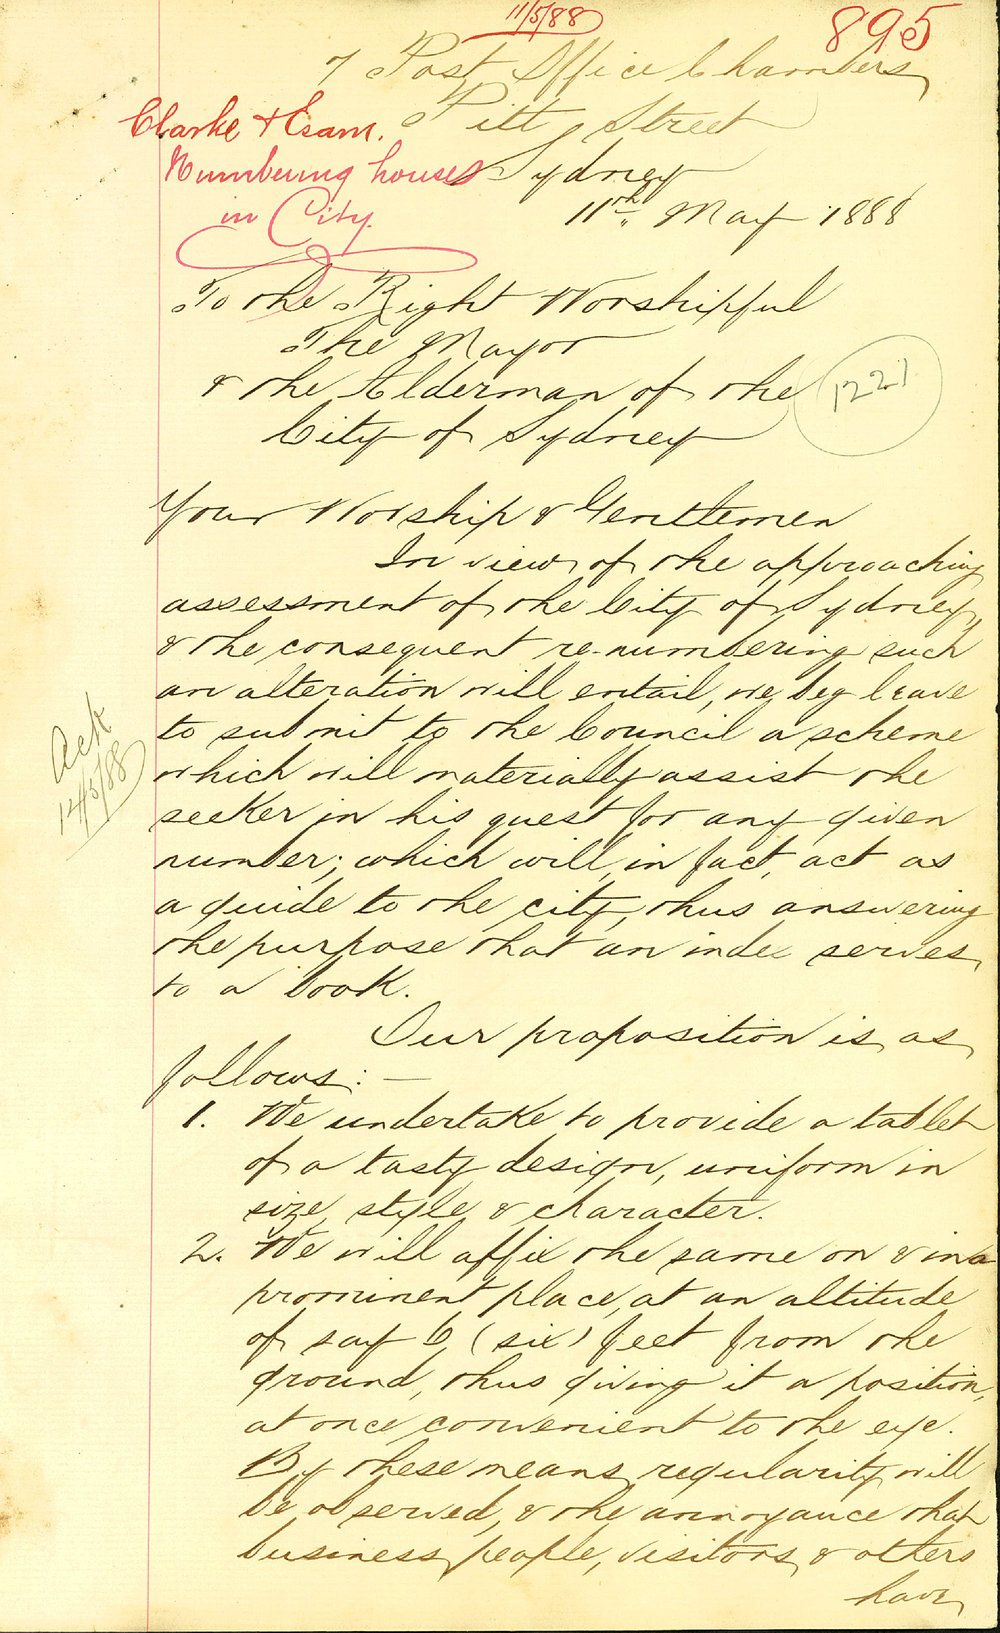 11/5/88
895
7 Post Office Chambers
Pitt Street
Sydney
11th May 1888
Clarke & Esam.
Numbering houses
in City.
To the Right Worshipful
The Mayor
& the Alderman of the
City of Sydney
1221
Your Worship & Gentlemen
In view of the approaching
assessment of the City of Sydney,
& the consequent re-numbering such
an alteration will entail, we beg leave
to submit to the Council a scheme
which will materially assist the
seeker in his quest for any given
number; which will, in fact, act as
a guide to the city, thus answering
the purpose that an index serves
to a book.
Ack
14/5/88
Our proposition is as
follows: —
1. We undertake to provide a tablet
of a tasty design, uniform in
size, style & character.
2. We will affix the same on & in a
prominent place, at an altitude
of say 6 (six) feet from the
ground, thus giving it a position,
at once convenient to the eye.
By these means regularity will
be observed, & the annoyance that
business people, visitors & others
have